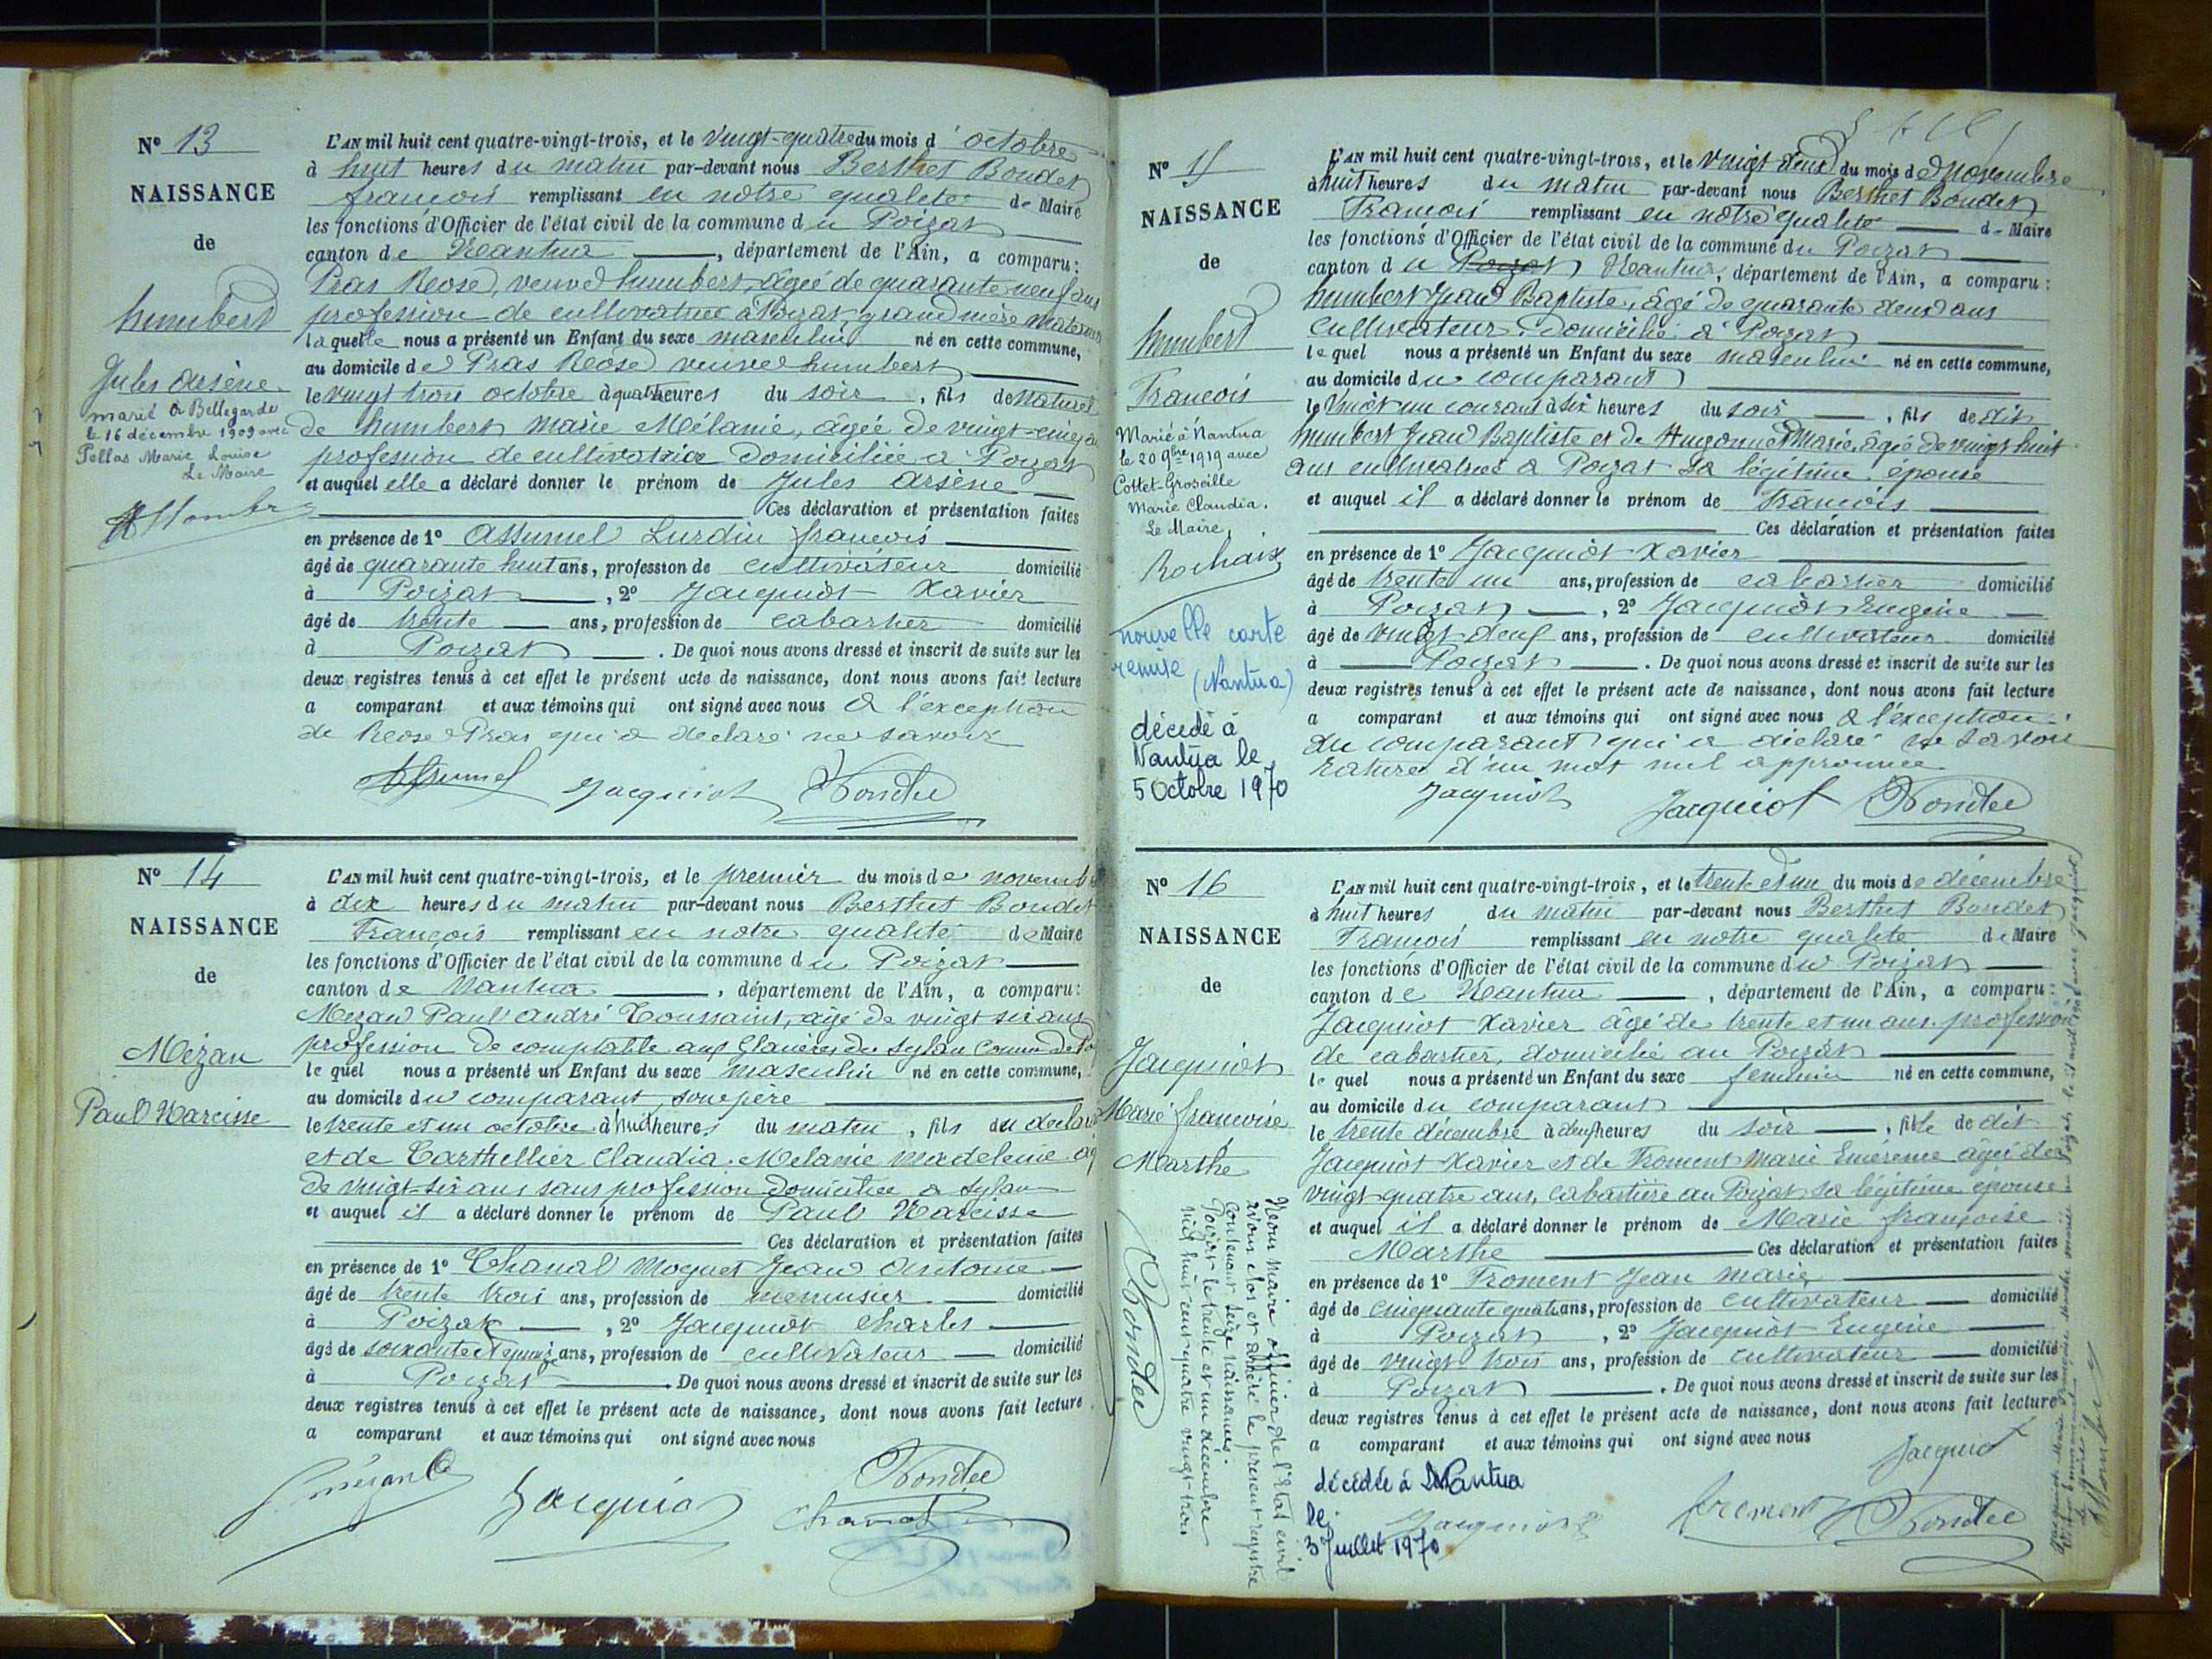 N° 13
NAISSANCE
de
humbert
Jules Arsène
marié à Bellegarde
le 16 décembre 1909 avec
Pellas Marie Louise
Le Maire
L'AN mil huit cent quatre-vingt-trois, et le vingt-quatre du mois d'octobre
à huit heures du matin par-devant nous Berthet Bondet
françois remplissant en notre qualité de Maire
les fonctions d'Officier de l'état civil de la commune du Poizat
canton de Nantua, département de l'Ain, a comparu :
Pras Rose, veuve humbert, âgée de quarante neuf ans
profession de cultivatrice à Poizat grand mère maternelle
laquelle nous a présenté un Enfant du sexe masculin né en cette commune,
au domicile de Pras Rose veuve humbert
le vingt trois octobre à quatre heures du soir, fils de naturel
de humbert Marie Mélanie, âgée de vingt-cinq a
profession de cultivatrice domiciliée à Poizat
et auquel elle a déclaré donner le prénom de Jules Arsène
Ces déclaration et présentation faites
en présence de 1° Assumel Lurdin françois
âgé de quarante huit ans, profession de cultivateur domicilié
à Poizat, 2° Jacquiot Xavier
âgé de trente ans, profession de cabartier domicilié
à Poizat. De quoi nous avons dressé et inscrit de suite sur les
deux registres tenus à cet effet le présent acte de naissance, dont nous avons fait lecture
a comparant et aux témoins qui ont signé avec nous à l'exception
de Rose Pras qui a déclaré ne savoir
Assumel Jacquiot Bondet
N° 14
NAISSANCE
de
Mézan
Paul Narcisse
L'AN mil huit cent quatre-vingt-trois, et le premier du mois de novembre
à dix heures du matin par-devant nous Berthet Bondet
François remplissant en notre qualité de Maire
les fonctions d'Officier de l'état civil de la commune du Poizat
canton de Nantua, département de l'Ain, a comparu :
Mezan Paul André Toussaint, âgé de vingt six ans
profession de comptable aux Glacières de Sylan
le quel nous a présenté un Enfant du sexe masculin né en cette commune,
au domicile du comparant, son père
le trente et un octobre à huit heures du matin, fils du
et de Carthellier Claudia Mélanie Madeleine
de vingt-six ans sans profession domiciliée à Sylan
et auquel il a déclaré donner le prénom de Paul Narcisse
Ces déclaration et présentation faites
en présence de 1° Chanal Moquet Jean Antoine
âgé de trente trois ans, profession de menuisier domicilié
à Poizat, 2° Jacquiot Charles
âgé de soixante et quinze ans, profession de cultivateur domicilié
à Poizat. De quoi nous avons dressé et inscrit de suite sur les
deux registres tenus à cet effet le présent acte de naissance, dont nous avons fait lecture
a comparant et aux témoins qui ont signé avec nous
Mézan Jacquiot Bondet
Chanal
N° 15
NAISSANCE
de
humbert
Francois
Marié à Nantua
le 20 9bre 1919 avec
Cottet-Groseille
Marie Claudia.
Le Maire,
Rochaix
nouvelle carte
remise (Nantua)
décédé à
Nantua le
5 Octobre 1970
L'AN mil huit cent quatre-vingt-trois, et le vingt deux du mois de novembre
à huit heures du matin par-devant nous Berthet Bondet
Francois remplissant en notre qualité de Maire
les fonctions d'Officier de l'état civil de la commune du Poizat
canton du Poizat Nantua, département de l'Ain, a comparu :
humbert Jean Baptiste, âgé de quarante deux ans
cultivateur domicilié à Poizat
le quel nous a présenté un Enfant du sexe masculin né en cette commune,
au domicile du comparant
le vingt un courant à six heures du soir, fils de dit
humbert Jean Baptiste et de Hugonnet Marie, âgée de vingt huit
ans cultivatrice à Poizat sa légitime épouse
et auquel il a déclaré donner le prénom de Francois
Ces déclaration et présentation faites
en présence de 1° Jacquiot Xavier
âgé de trente un ans, profession de cabartier domicilié
à Poizat, 2° Jacquiot Eugène
âgé de vingt deux ans, profession de cultivateur domicilié
à Poizat. De quoi nous avons dressé et inscrit de suite sur les
deux registres tenus à cet effet le présent acte de naissance, dont nous avons fait lecture
a comparant et aux témoins qui ont signé avec nous à l'exception
du comparant qui a déclaré ne savoir
rature d'un mot nul approuvée
Jacquiot Jacquiot Bondet
N° 16
NAISSANCE
de
Jacquiot
Marie francoise
Marthe
Nous Maire officier de l'Etat civil
avons clos et arrêté le présent registre
contenant seize naissances.
Poizat le trente et un décembre
mil huit cent quatre vingt-trois
Bondet
L'AN mil huit cent quatre-vingt-trois, et le trente et un du mois de décembre
à huit heures du matin par-devant nous Berthet Bondet
Francois remplissant en notre qualité de Maire
les fonctions d'Officier de l'état civil de la commune du Poizat
canton de Nantua, département de l'Ain, a comparu :
Jacquiot Xavier âgé de trente et un ans. profession
de cabartier, domicilié au Poizat
le quel nous a présenté un Enfant du sexe feminin né en cette commune,
au domicile du comparant
le trente décembre à deux heures du soir, fille de dit
Jacquiot Xavier et de Froment Marie Emérence âgée de
vingt quatre ans, cabartière au Poizat sa légitime épouse
et auquel il a déclaré donner le prénom de Marie françoise
Marthe Ces déclaration et présentation faites
en présence de 1° Froment Jean Marie
âgé de cinquante quatre ans, profession de cultivateur domicilié
à Poizat, 2° Jacquiot Eugène
âgé de vingt trois ans, profession de cultivateur domicilié
à Poizat. De quoi nous avons dressé et inscrit de suite sur les
deux registres tenus à cet effet le présent acte de naissance, dont nous avons fait lecture
a comparant et aux témoins qui ont signé avec nous
Jacquiot
décédée à Nantua
le
3 Juillet 1970
Jacquiot froment Bondet
Jacquiot Marie Françoise Marthe mariée au Poizat, le
Le Maire